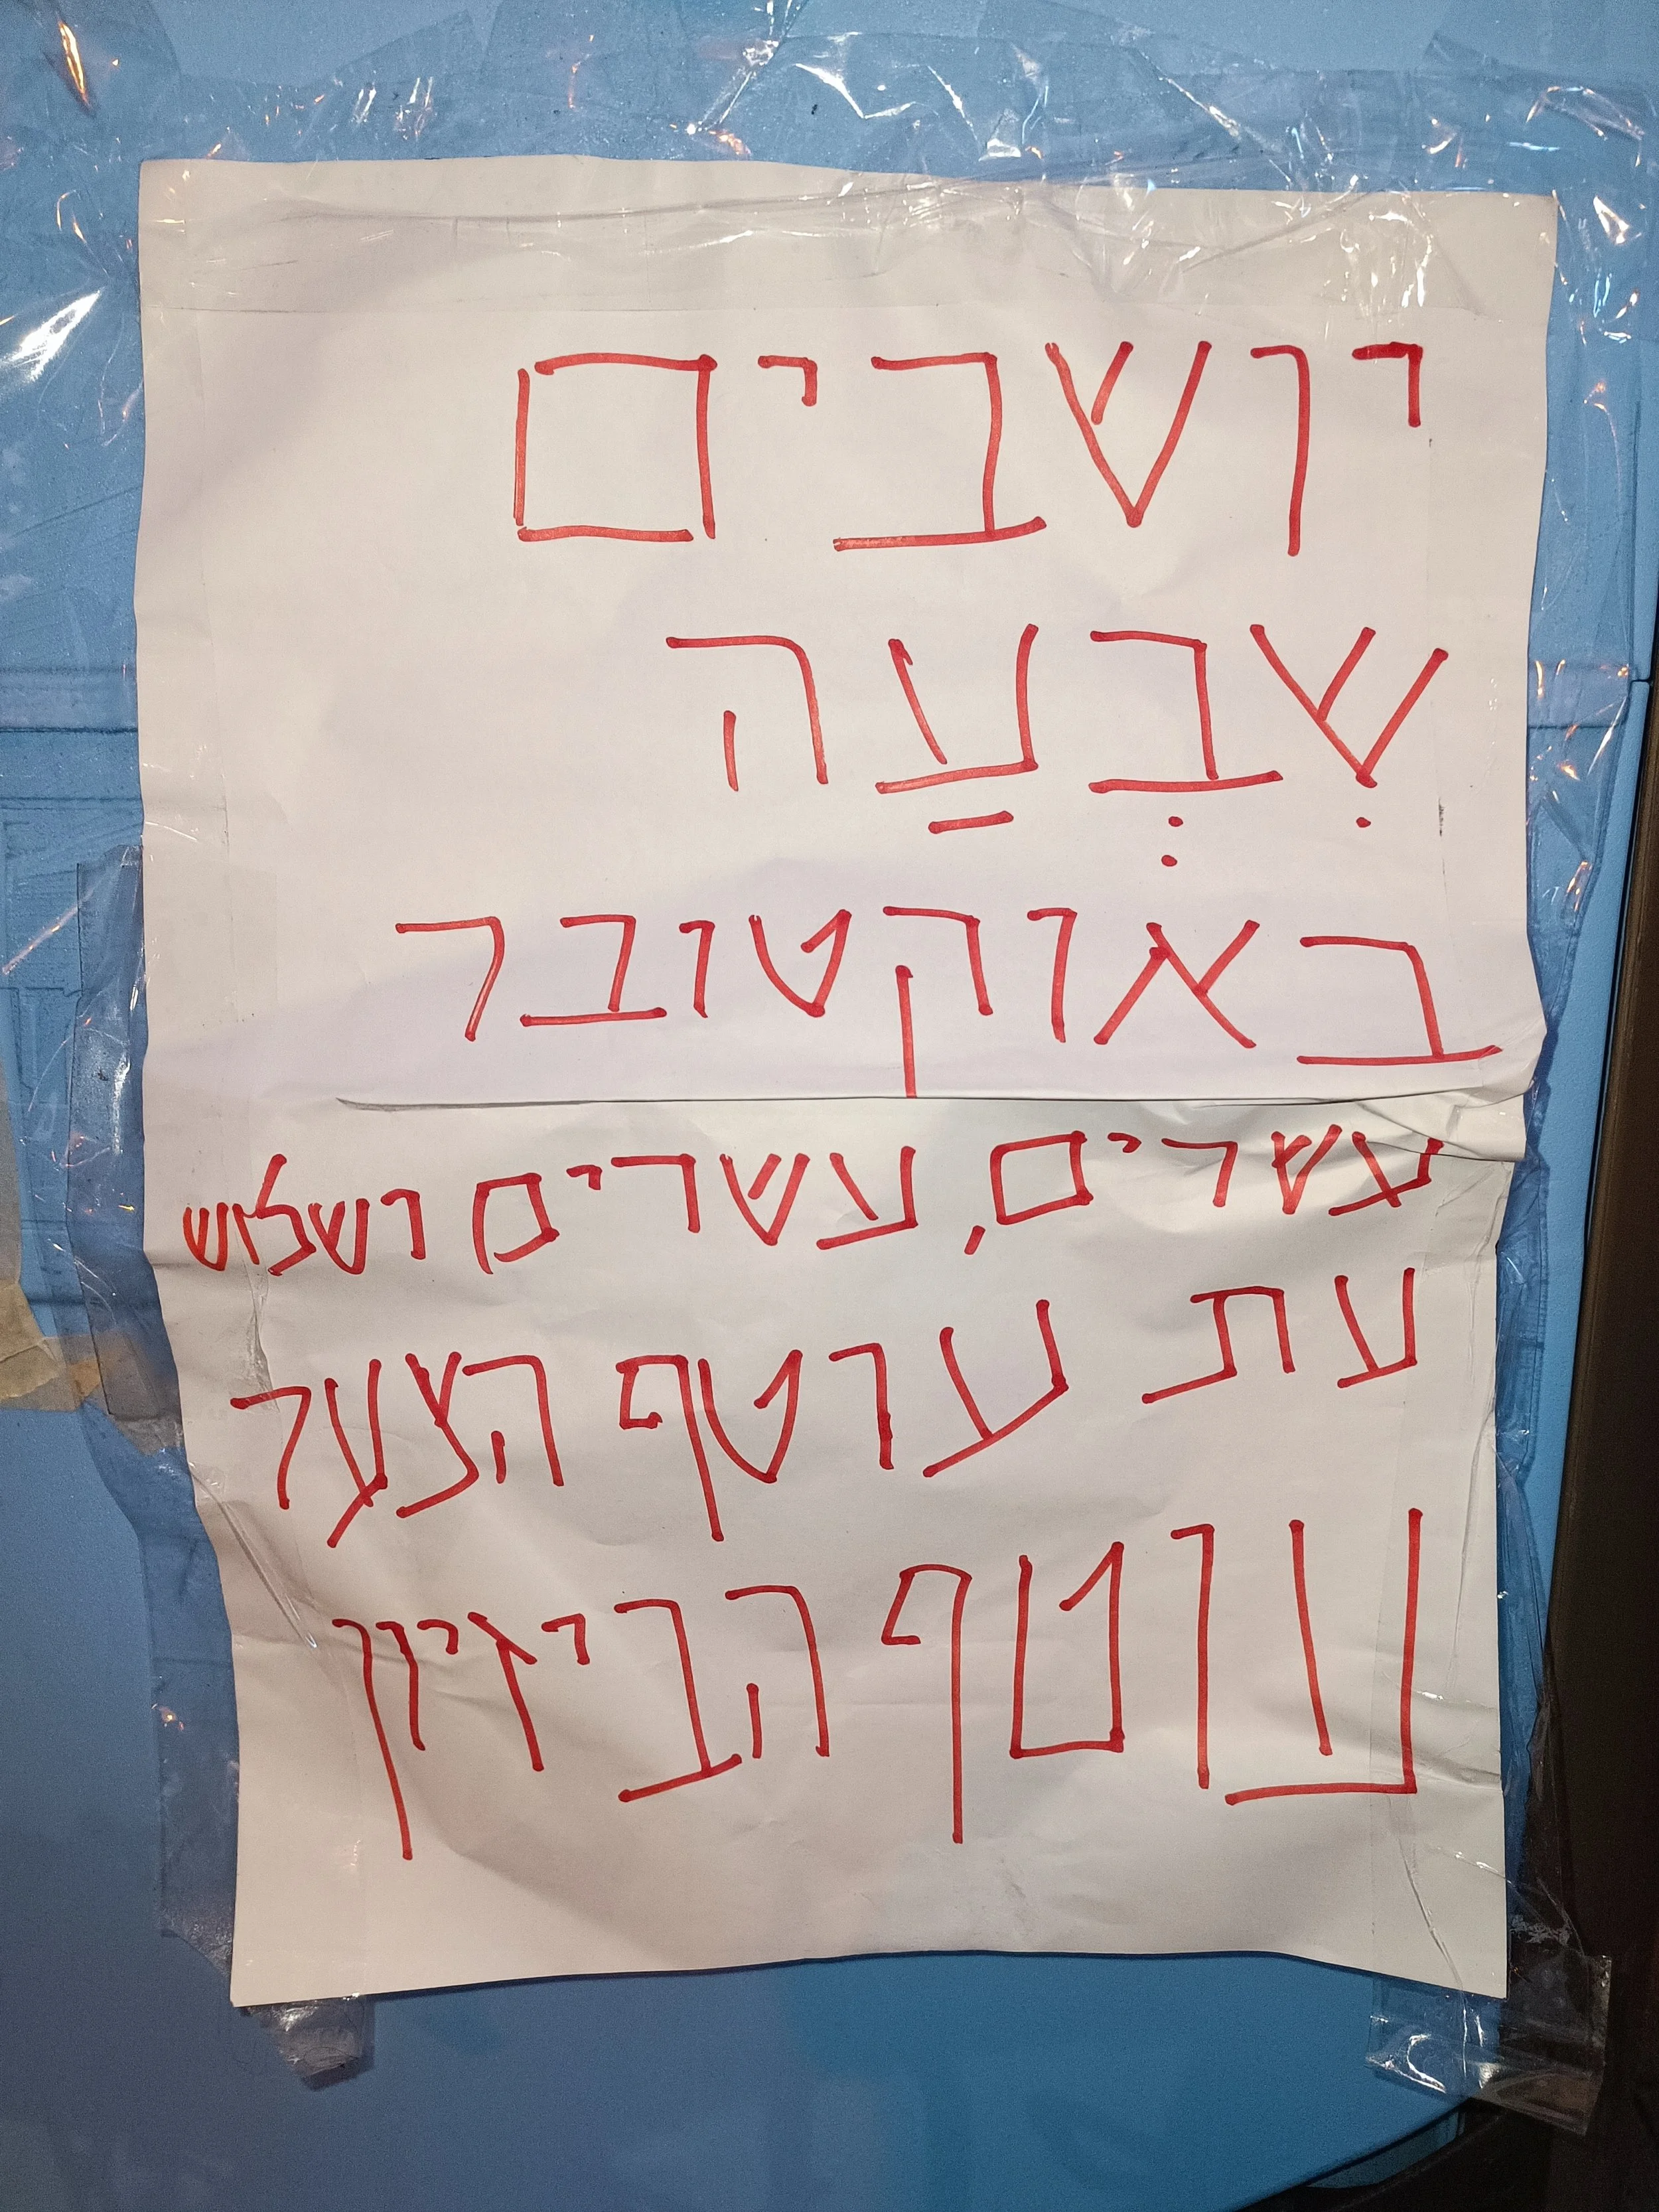 יושבים
שִבְעַה
באוקטובר
עשרים, עשרים ושלוש
עת עוטף הצער
עוטף הביזיון